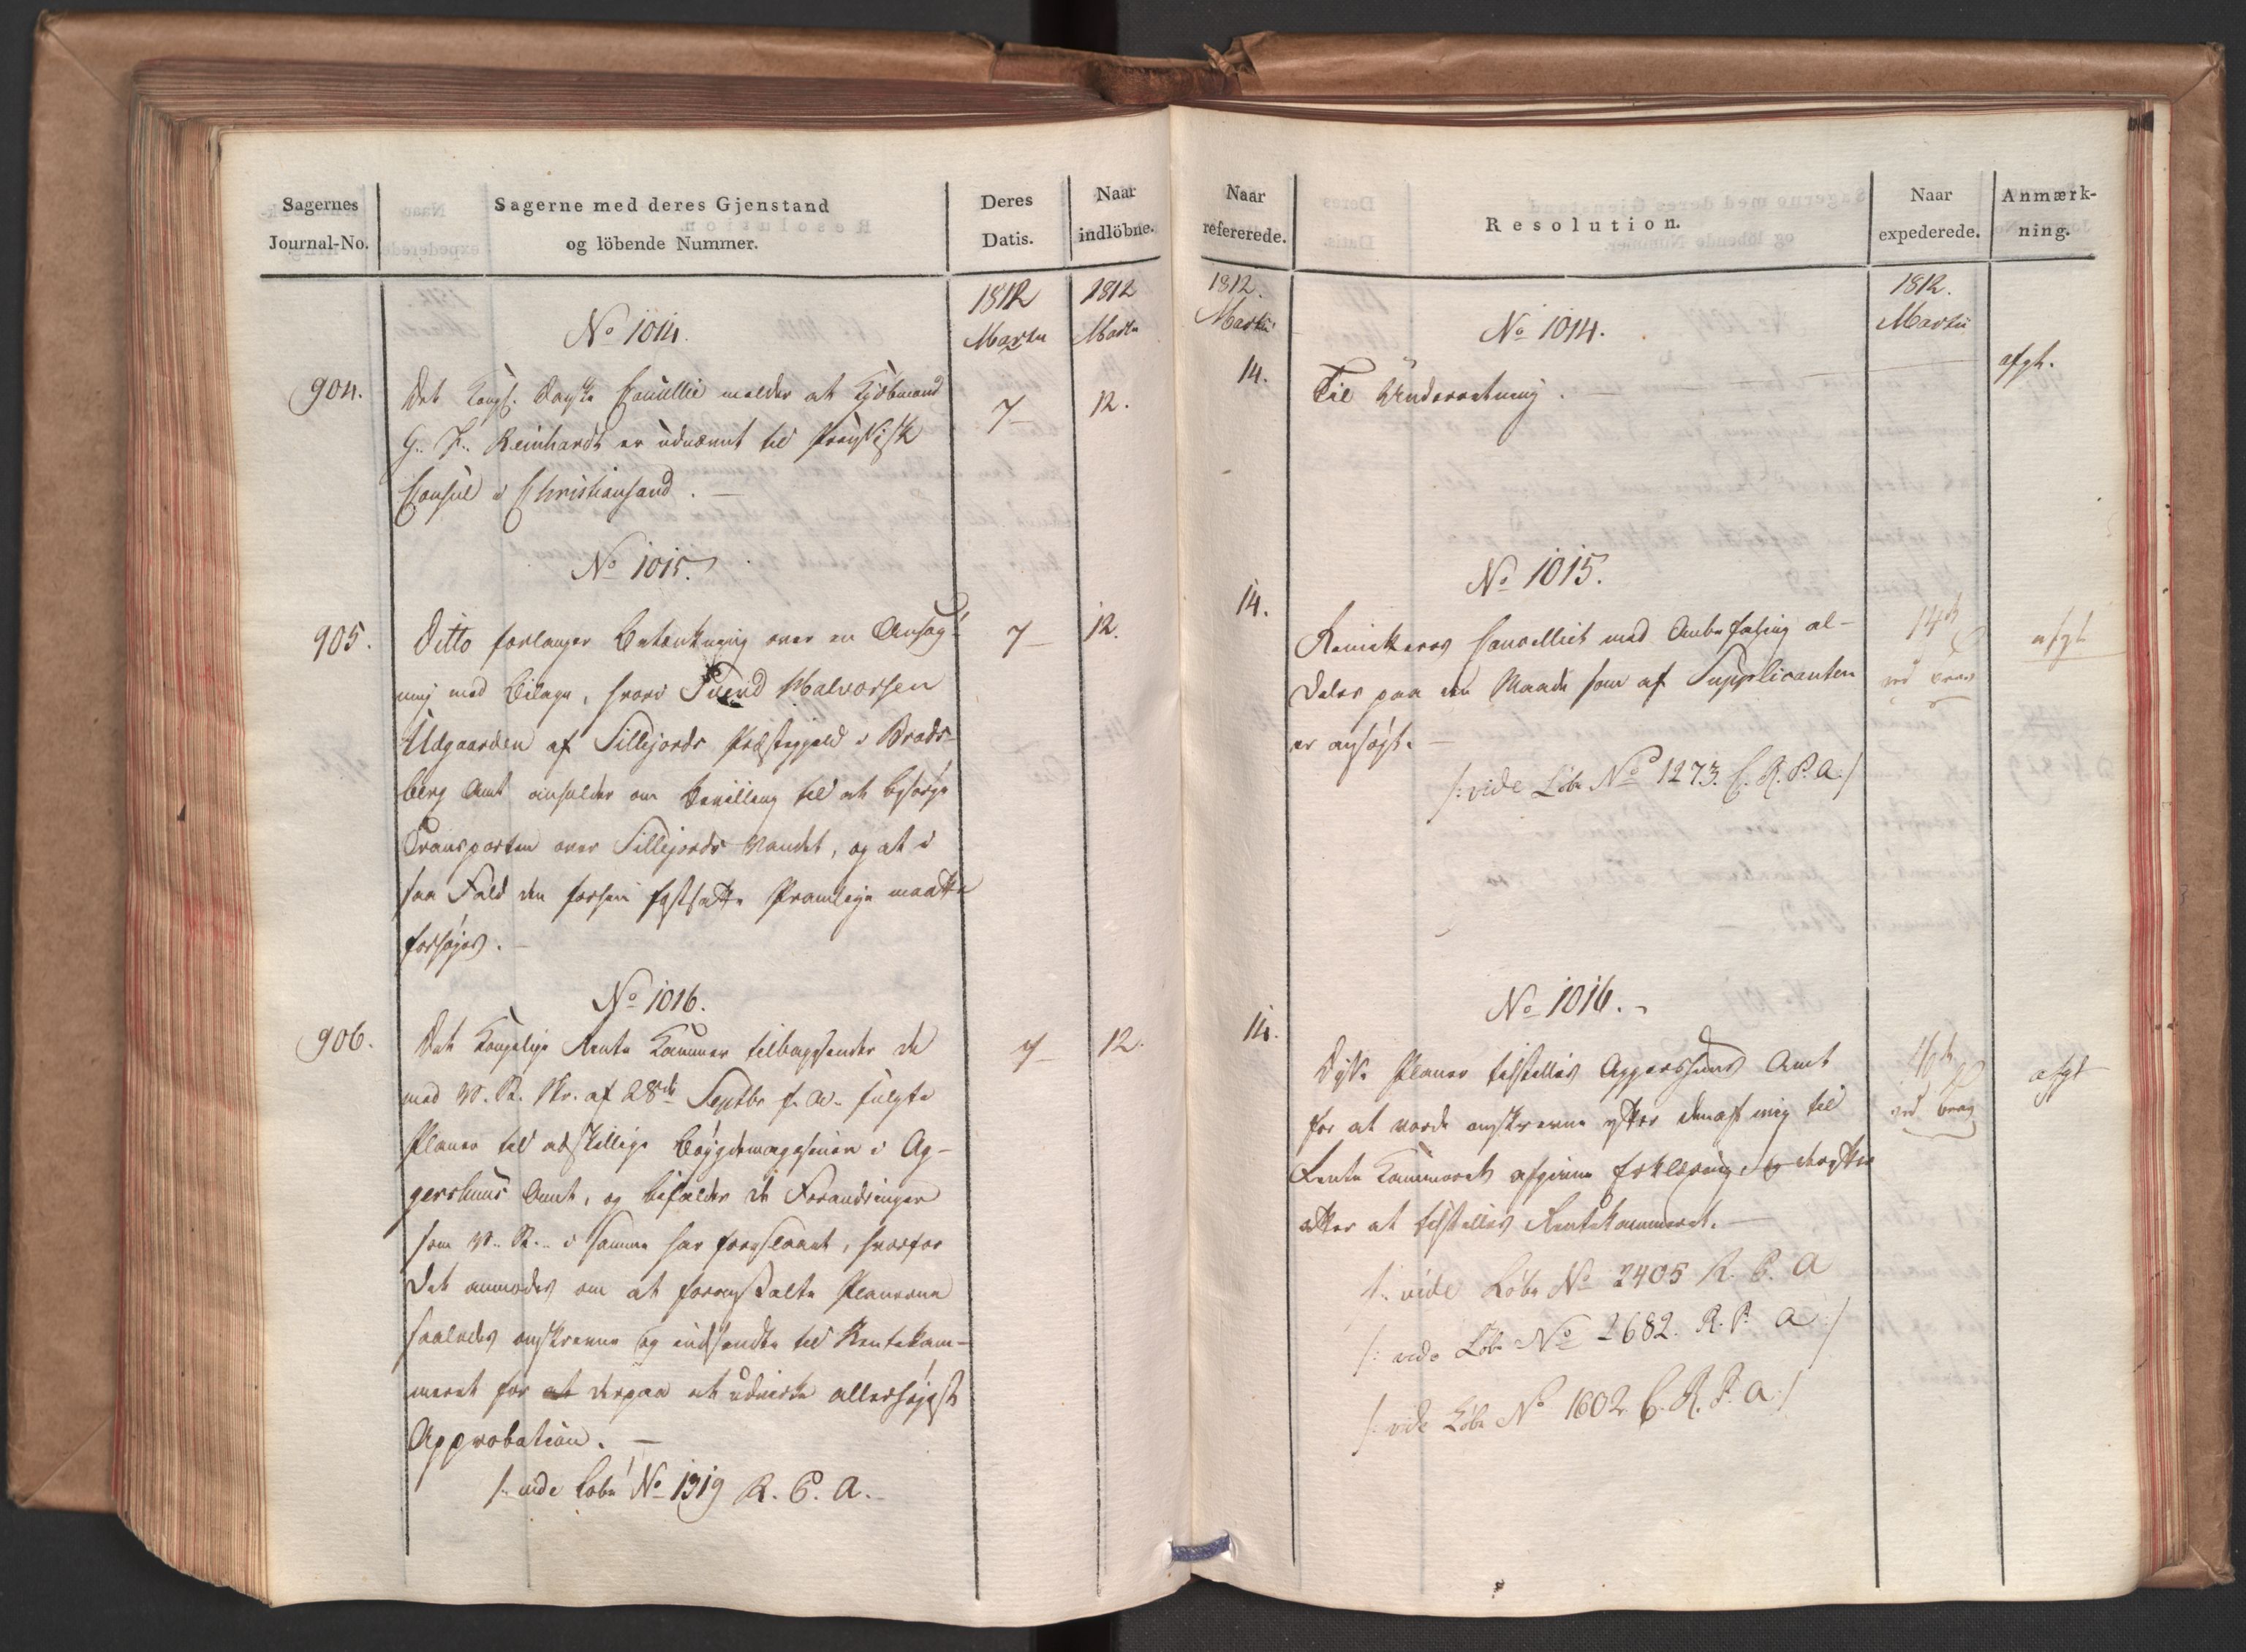 Sagernes
Journal-No.
Sagerne med deres Gjenstand
og löbende Nummer.
Deres
Datis.
Naar
indlöbne.
1812
Martii
1812
Martii
No 1014.
904.
Det Kongl. Danske Cancellie melder at Kjöbmand
7
12.
G. F. Reinhardt er udnævnt til Preussisk
Consul i Christiansand. —
No 1015.
905.
Ditto forlanger Betænkning over en Ansøg-
7
12.
ning med Bilage, hvori Svend Halvorsen
Udgaarden af Sillejords Præstegjeld i Brads-
berg Amt anholder om Bevilling til at besørge
Transporten over Sillejords Vandet, og at i
saa Fald den forhen fastsatte Pramleje maatte
forhøjes. —
No 1016.
906.
Det Kongelige Rente Kammer tilbagesender de
7
12.
med V. R. Skr. af 28de Septbr f. A. fulgte
Planer til adskillige Bøygdemagasiner i Ag-
gershuus Amt, og bifalder de Forandringer
som V. R. i samme har foreslaaet, hvorfor
det anmodes om at foranstalte Planerne
saaledes omskrevne og indsendte til Rentekam-
meret for at derpaa at udvirke allerhøjeste
Approbation. —
/: vide Løbe No 1319 R. P. A.
Naar
refererede.
Resolution.
Naar
expederede.
Anmærk-
ning.
1812.
Martii
1812.
Martii
No 1014.
14.
Til Underretning. —
afgt.
No 1015.
14.
Remitteres Cancelliet med Anbefaling al-
14de
afgt
deles paa den Maade som af Supplicanten
er ansøgt. —
/: vide Løbe No 1273. C. R. P. A :/
No 1016.
14.
Disse Planer tilstilles Aggershuus Amt
afgt
for at vorde omskrevne efter den af mig til
Rente Kammeret afgivne Erklæring, og derefter
atter at tilstilles Rentekammeret. —
/: vide Løbe No 2405 R. P. A
/: vide Løbe No 2682. R. P. A :/
/: vide Løbe No 1602 C. R. P. A :/